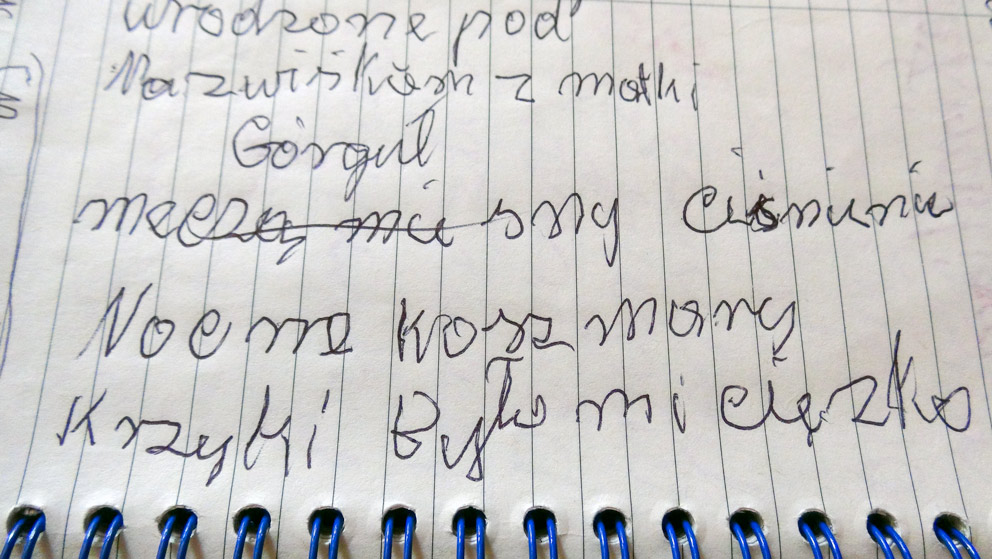 urodzone pod
Nazwiskiem z matki
Górgul
meczą mię sny ciśninia
Nocne koszmary
Krzyki Było mi ciężko